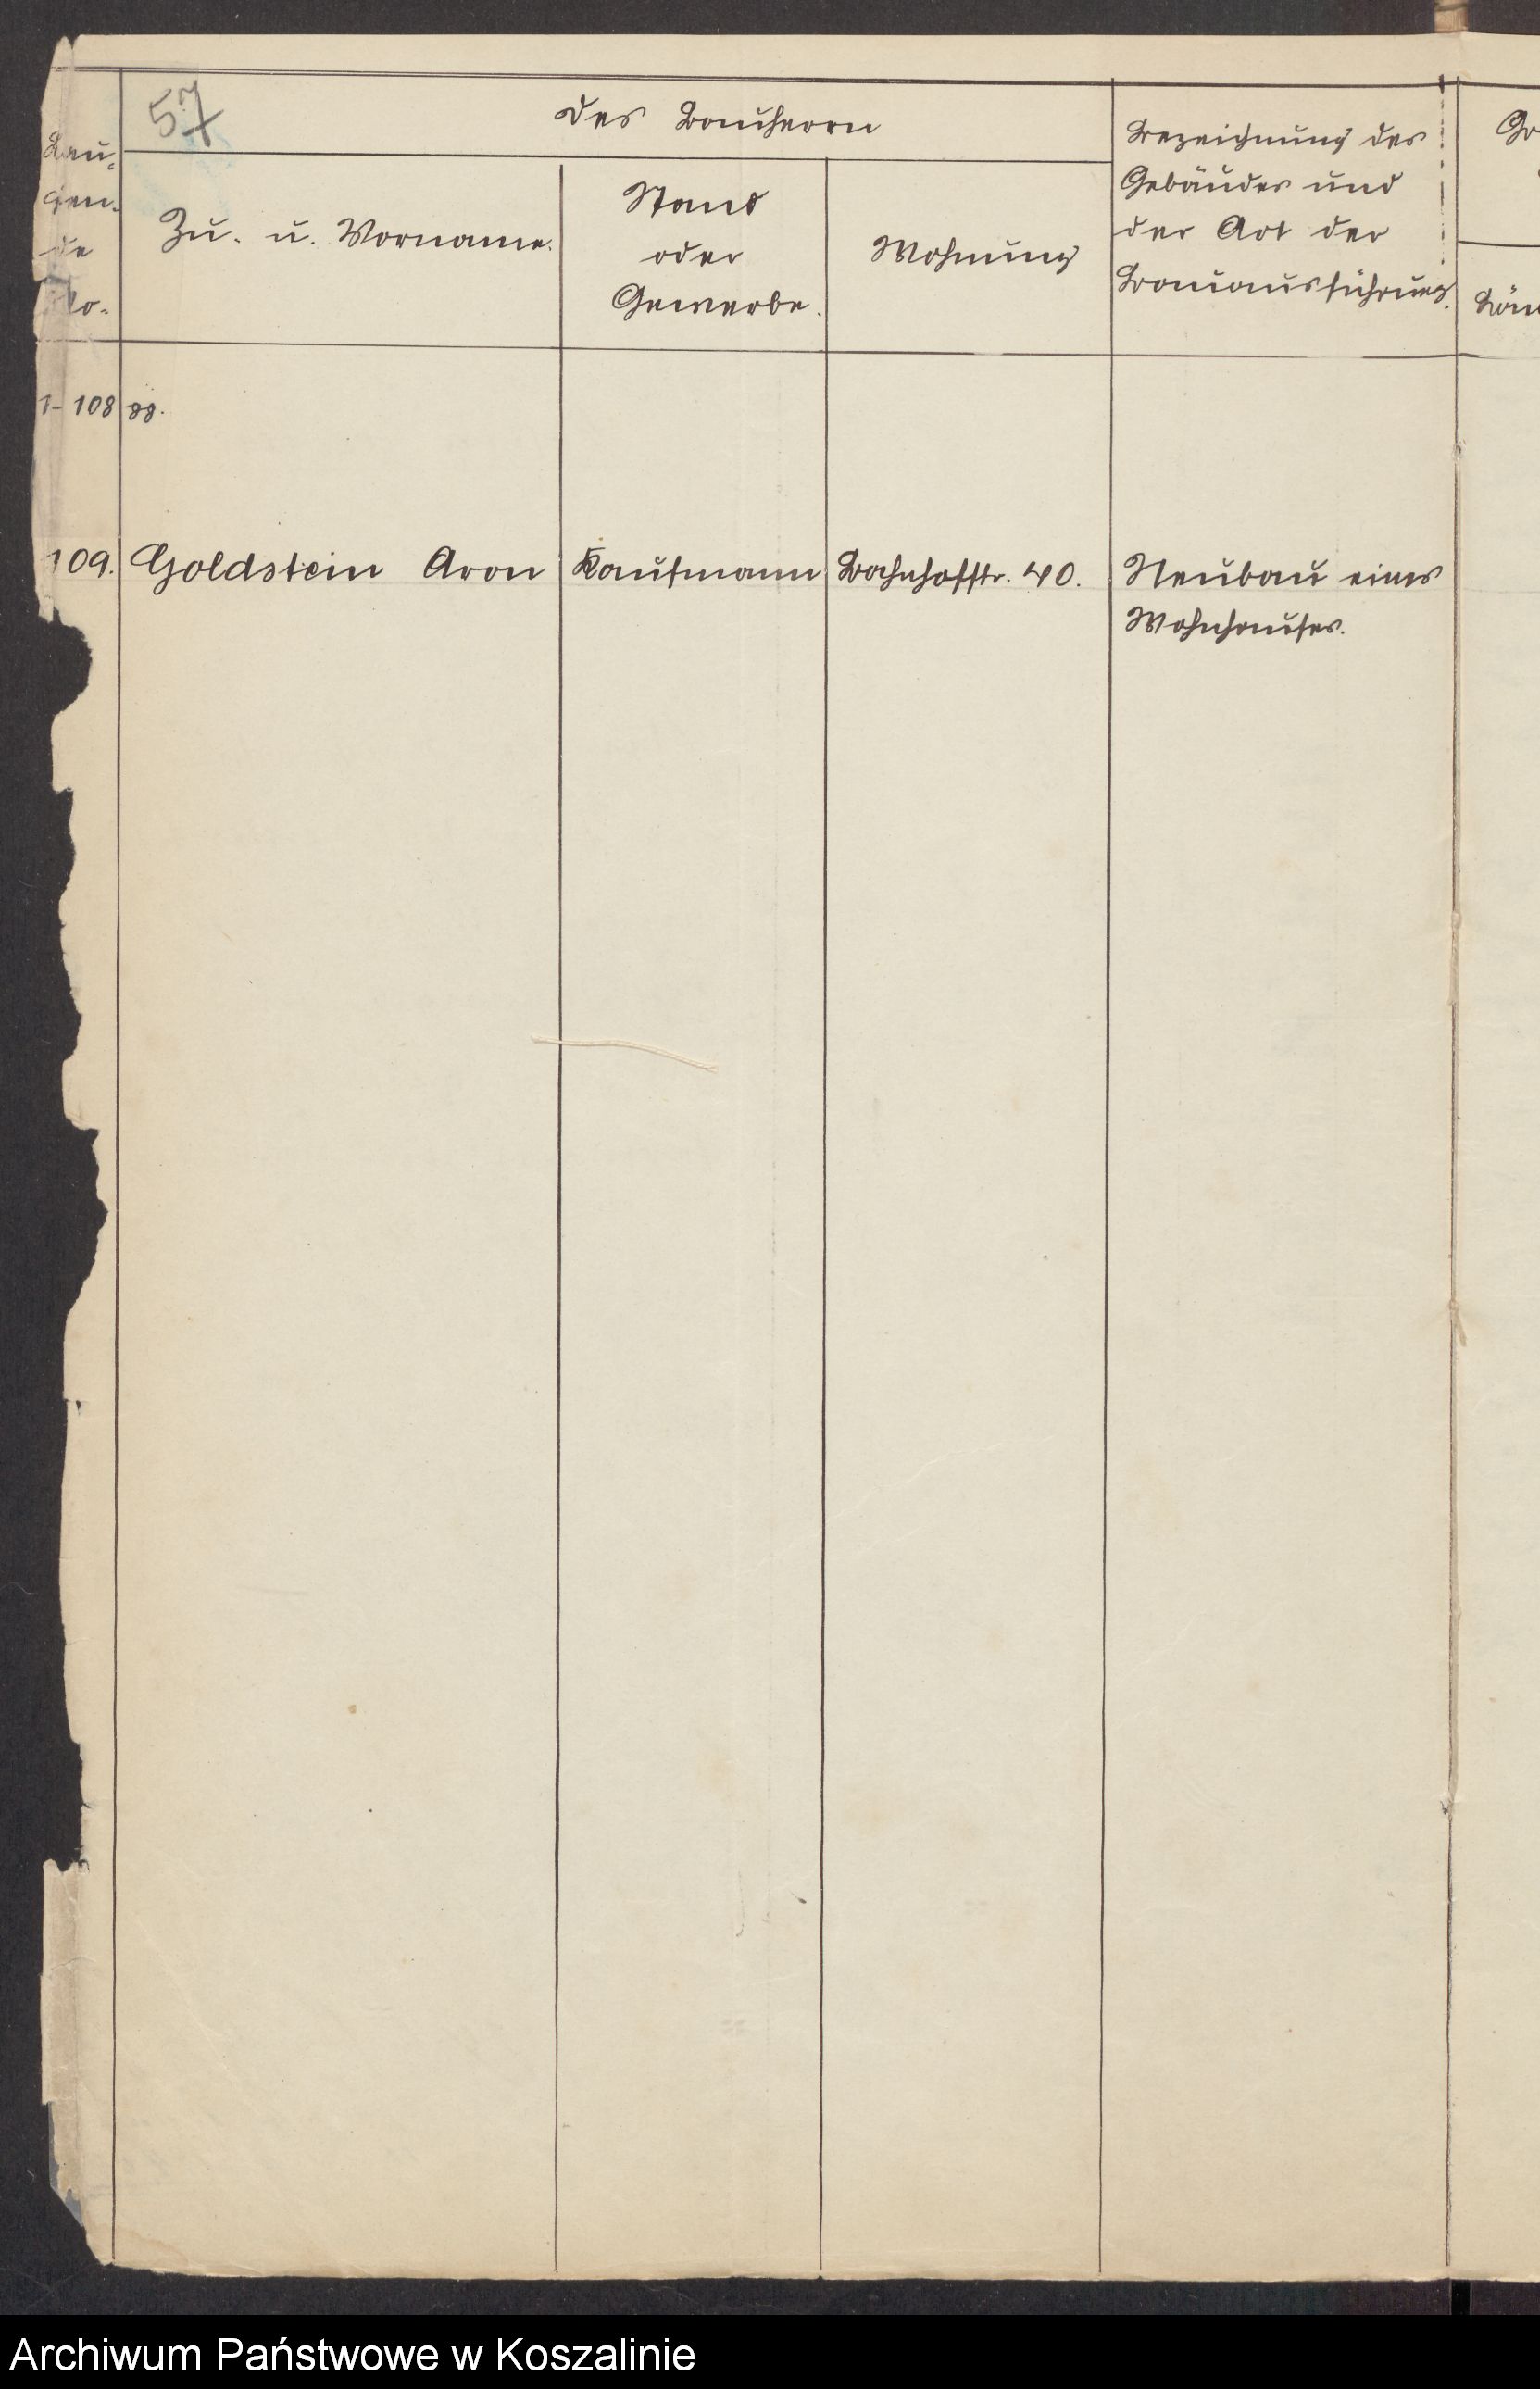 57
Des Bauherrn
Lau-
fen-
de
No.
Zu- u. Vorname.
Stand
oder
Gewerbe.
Wohnung
Bezeichnung des
Gebäudes und
der Art der
Bauausführung.
1-108
109. Goldstein Aron Kaufmann Bahnhofstr. 40. Neubau eines
Wohnhauses.
Archiwum Państwowe w Koszalinie